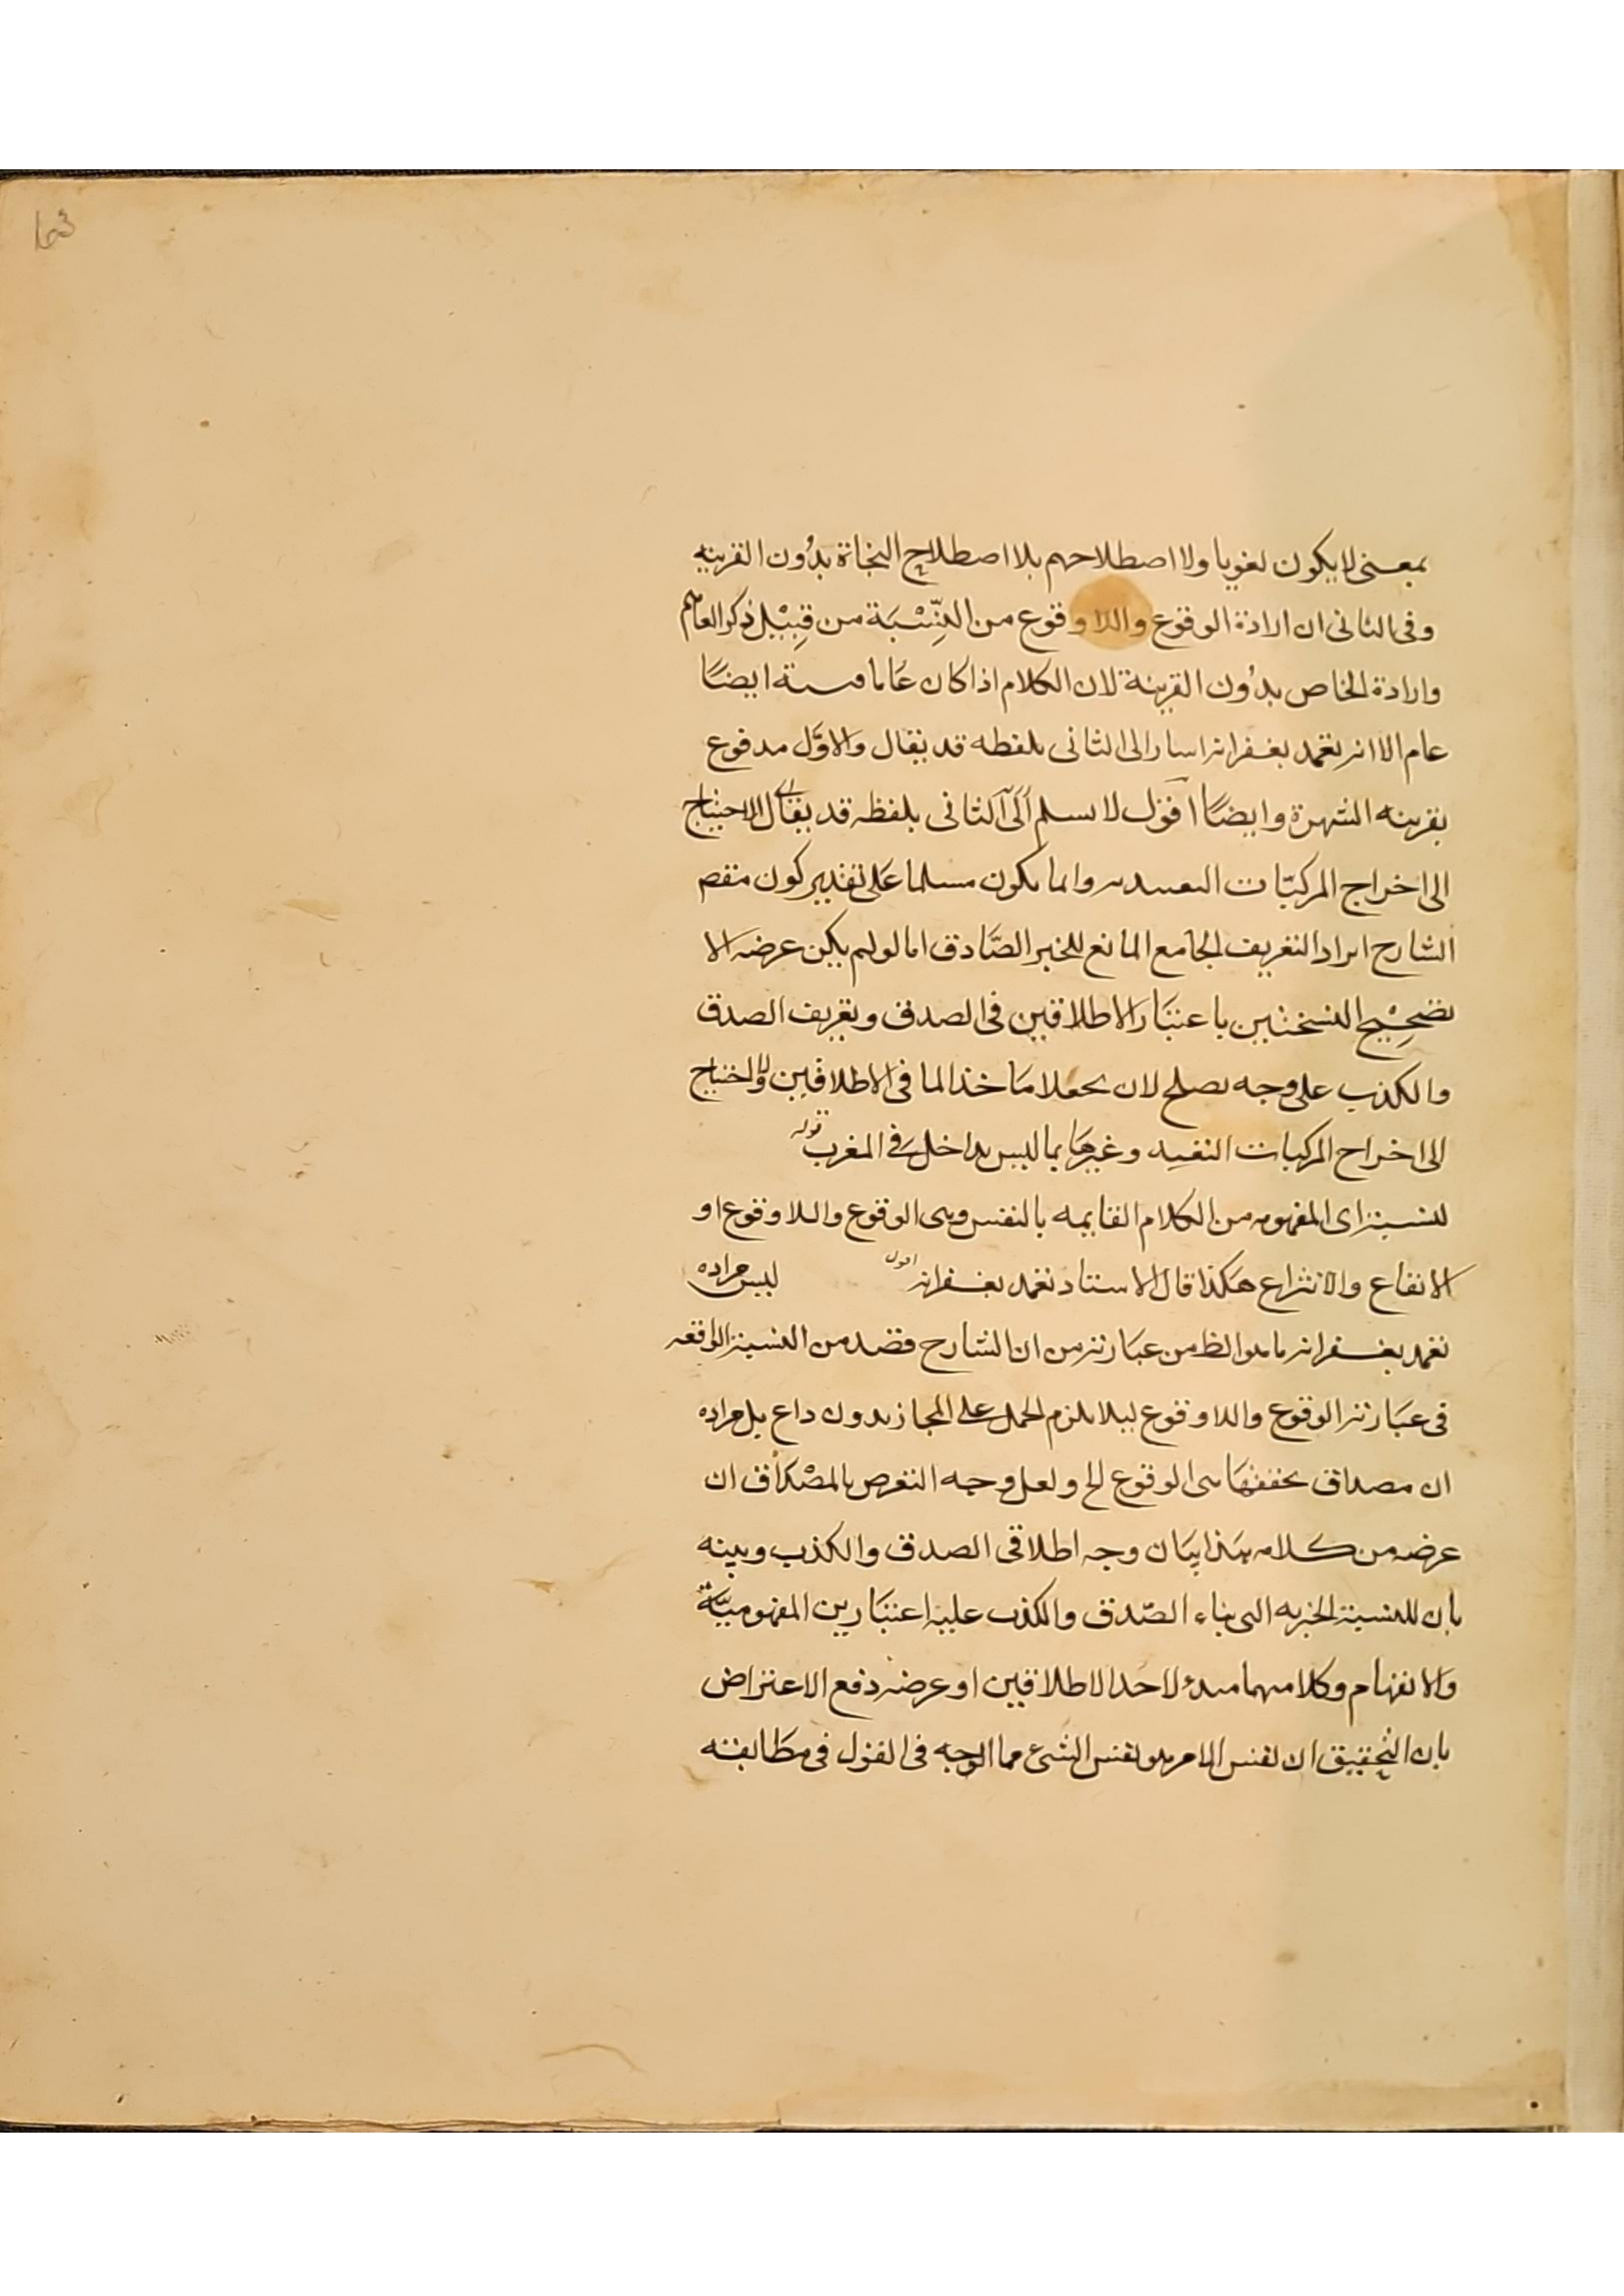 بمعنى لا يكون لغويا ولا اصطلاحهم بلا اصطلاح النحاة بدون القرينه
وفى الثانى ان ارادة الوقوع واللا وقوع من النِّسْبَة من قِبِيْل ذكر العام
وارادة الخاص بدون القرينة لان الكلام اذا كان عَاما ايضًا
عام الا انه تغمد بغفرانه اسار الى الثانى بلفطه قد يقال والاوَّل مدفوع
بقرينه الشهرة وايضًا اقول لا نسلم الثانى بلفظه قد يقال الاحتياج
الى اخراج المركبّات وانما يكون مسلما عَلى تقدير كون مقصد
الشارح ايراد التعريف الجامع المانع للخبر الصَّادق اما لو لم يكن عرضه الا
تصحِيْح النسختين باعتبَار الاطلاقين فى الصدق وتعريف الصدق
والكذب على وجه يصلح لان يجعلا مَاخذا لما فى الاطلاقين ولا احتياج
الى اخراج المركبات التقييد وغيرهَا بما ليس بداخل فى المعرب قوله
لنسبته اى المفهومه من الكلام القايمه بالنفس وهى الوقوع واللا وقوع او
الايقاع والانتزاع هكذا قال الاستاد تغمد بغفرانه اقول ليس مراده
تغمد بغفرانه ما هو الظ من عبَارته من ان الشارح قصد من النسبة الواقعه
فى عبَارته الوقوع واللا وقوع ليلا يلزم الحمل على المجاز بدون داع بل مراده
ان مصداق تحققهَا هى الوقوع الخ ولعل وجه التعرص بالمصْداق ان
عرضه من كلامه هذا بيَان وجه اطلاقى الصدق والكذب وبينه
بان للنسبة الخبريه التى بناء الصّدق والكذب عليها اعتبَارين المفهوميَّة
والانفهام وكلا منهما مبدء لاحد الاطلاقين او عرضه دفع الاعتراض
بان التحقيق ان نفس الامر هو نفس الشىء فما الوجه فى القول فى مطَابقته